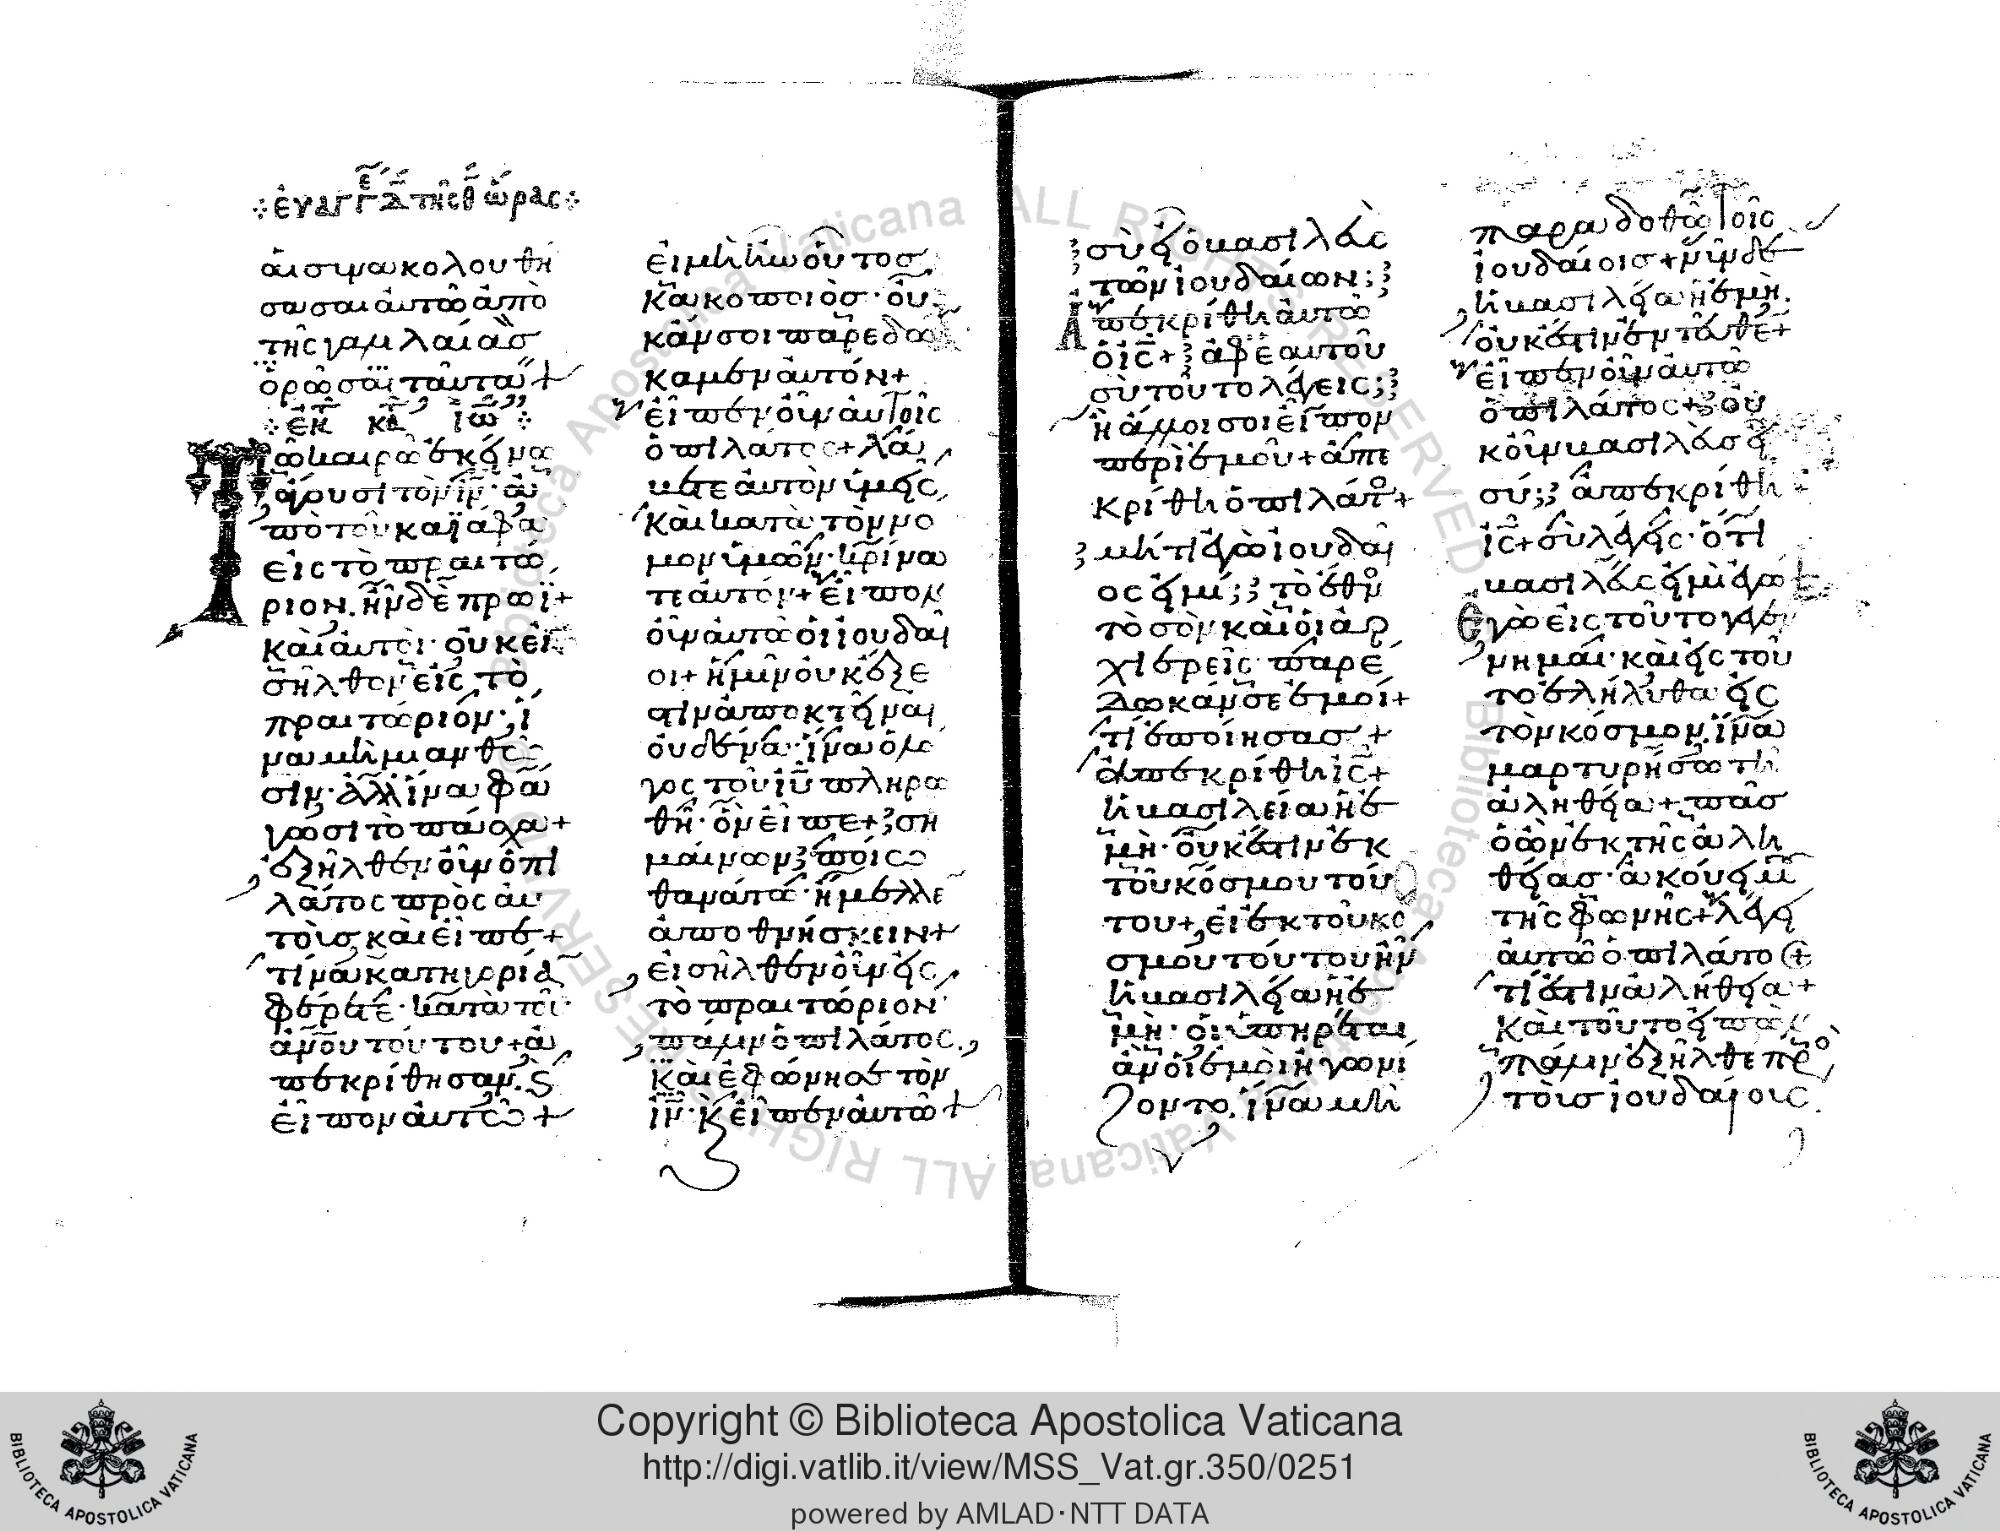 εὐαγγέ τῆς θ ὥρας
αι συνακολουθή
σασαι αὐτῶ ἀπὸ
τῆς γαλιλαίας
ὁρῶσαι ταῦτα+
ἐκ κ ἰω
Τῶ καιρῶ ἐκείνω
ἄγουσι τὸν ἰν· ἀ
πὸ τοῦ καϊάφα
εἰς τὸ πραιτώ
ριον. ἦν δὲ πρωΐ+
καὶ αὐτοὶ· οὐκ εἰ
σῆλθον εἰς τὸ
πραιτώριον, ἵ
να μὴ μιανθῶ
σιν· ἀλλ' ἵνα φά
γωσι τὸ πάσχα+
ἐξῆλθεν οὖν ὁ πι
λάτος πρὸς αὐ
τοὺς καὶ εἶπε+
τίνα κατηγορίαν
φέρετε· κατὰ τοῦ
ἀνου τούτου+ ἀ
πεκρίθησαν, ϛ
εἶπον αὐτῶ+
εἰ μὴ ἦν οὗτος
κακοποιὸσ· οὐ
κάν σοι παρεδώ
καμεν αὐτόν+
εἶπεν οὖν αὐτοῖς
ὁ πιλάτος+ λά
βετε αὐτὸν ὑμεῖς,
καὶ κατὰ τὸν νό
μον ὑμῶν· κρίνα
τε αὐτόν+ εἶπον
οὖν αὐτῶ οἱ ἰουδαῖ
οι+ ἡμῖν οὐκ ἔξε
στιν ἀποκτεῖναι
οὐδένα· ἵνα ὁ λό
γος τοῦ ἰυ πληρω
θῆ· ὃν εἶπε+ ση
μαίνων ποίω
θανάτω· ἤμελλε
ἀποθνήσκειν+
εἰσῆλθεν οὖν εἰς
τὸ πραιτώριον
πάλιν ὁ πιλάτος,
καὶ ἐφώνησε τὸν
ἰν· κ εἶπεν αὐτῶ+
σὺ εἶ ὁ βασιλεὺς
τῶν ἰουδαίων;
Ἀπεκρίθη αὐτῶ
ὁ ις+ ἀφ' ἑαυτοῦ
σὺ τοῦτο λέγεις;
ἢ ἄλλοι σοι εἶπον
περὶ ἐμοῦ+ ἀπε
κρίθη ὁ πιλάτο+
μήτι ἐγὼ ἰουδαῖ
ος εἰμί; τὸ ἔθνο
τὸ σὸν καὶ οἱ ἀρ
χιερεῖς· παρέ
δωκάν σε ἐμοί+
τί ἐποίησας+
ἀπεκρίθη ις+
ἡ βασιλεία ἡ ἐ
μὴ· οὐκ ἔστιν ἐκ
τοῦ κόσμου τού
του+ εἰ ἐκ τοῦ κό
σμου τούτου ἦν
ἡ βασιλεία ἡ ἐ
μὴ· οἱ ὑπηρέται
ἂν οἱ ἐμοὶ ἠγωνί
ζοντο, ἵνα μὴ
παραδοθῶ τοῖς
ἰουδαίοις+ νῦν δὲ
ἡ βασιλεία ἡ ἐμὴ
οὐκ ἔστιν ἐντεῦθε+
εἶπεν οὖν αὐτῶ
ὁ πιλάτος+ οὐ
κοῦν βασιλεὺς εἶ
σύ; ἀπεκρίθη
ις+ σὺ λέγεις· ὅτι
βασιλεύς εἰμι ἐγώ
Ἐγὼ εἰς τοῦτο γεγέν
νημαι· καὶ εἰς τοῦ
το ἐλήλυθα εἰς
τὸν κόσμον, ἵνα
μαρτυρήσω τῆ
ἀληθεία+ πᾶς
ὁ ὢν ἐκ τῆς ἀλη
θείας· ἀκούει μου
τῆς φωνῆς+ λέγει
αὐτῶ ὁ πιλάτος
τί ἐστιν ἀλήθεια+
καὶ τοῦτο εἰπὼν
πάλιν ἐξῆλθε προ
τοὺς ἰουδαίους.
Copyright © Biblioteca Apostolica Vaticana
http://digi.vatlib.it/view/MSS_Vat.gr.350/0251
powered by AMLAD·NTT DATA